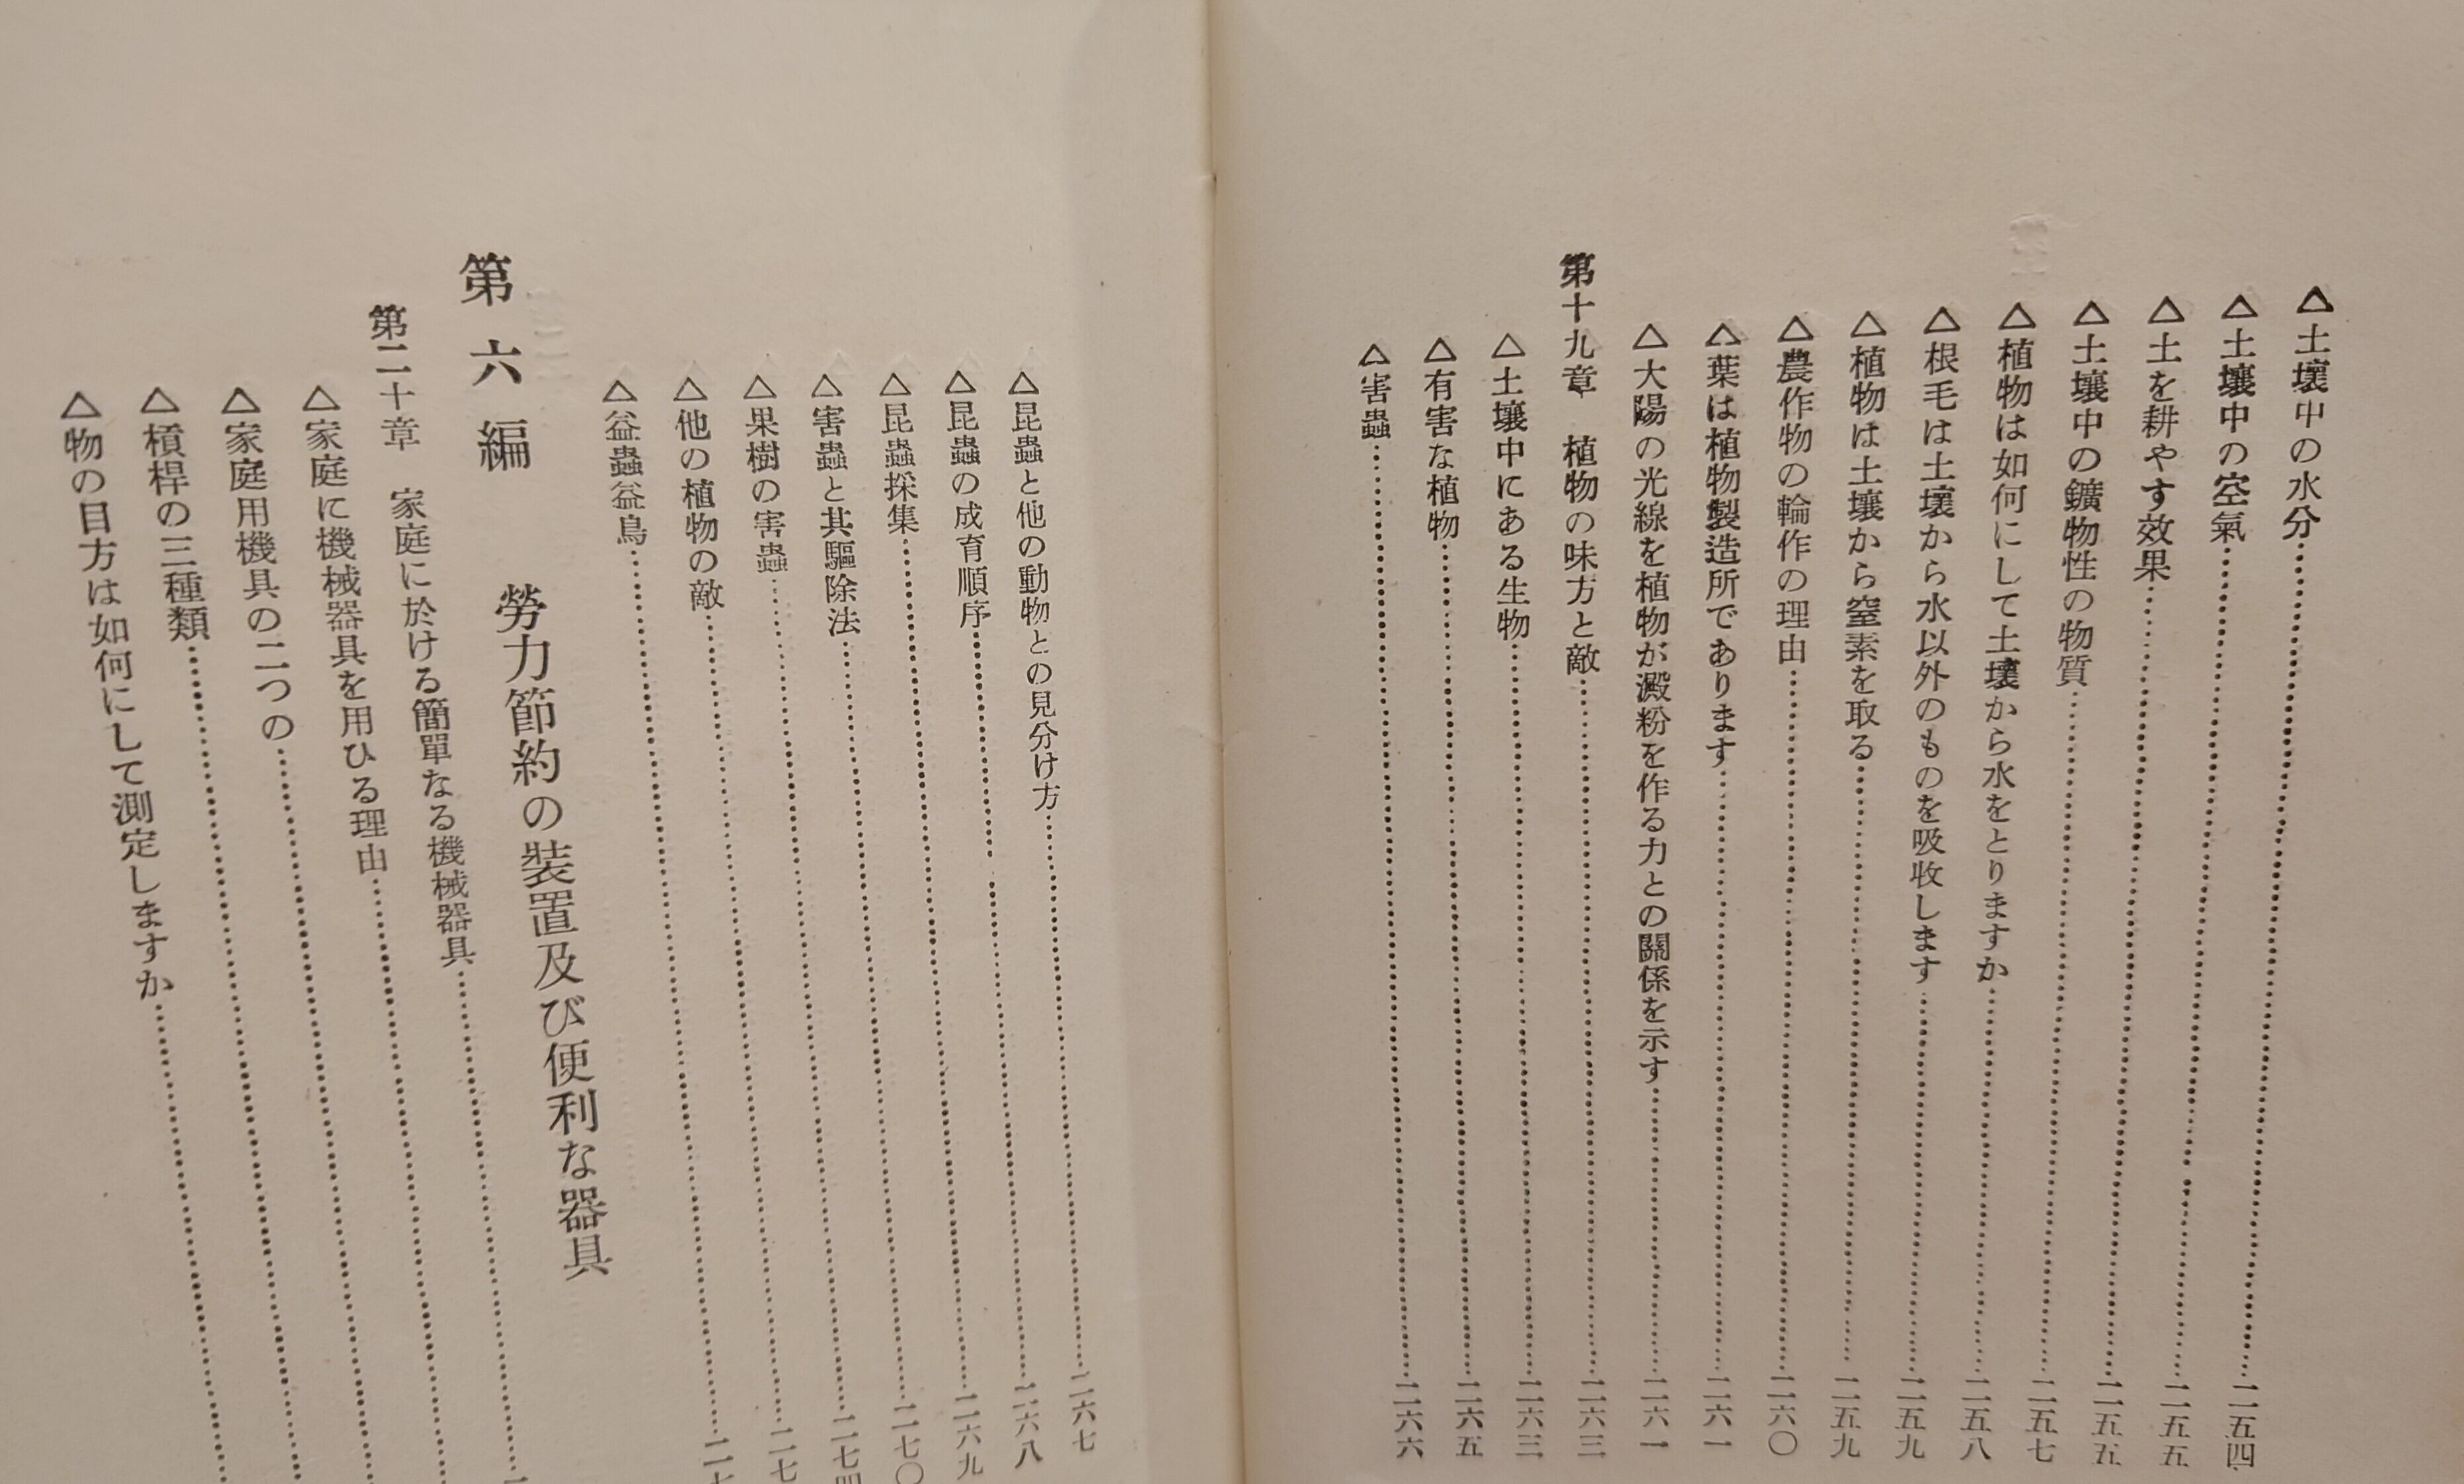 △土壤中の水分……二五四
△土壤中の空氣……二五五
△土を耕やす效果……二五五
△土壤中の鑛物性の物質……二五七
△植物は如何にして土壤から水をとりますか……二五八
△根毛は土壤から水以外のものを吸收します……二五九
△植物は土壤から窒素を取る……二五九
△農作物の輪作の理由……二六〇
△葉は植物製造所であります……二六一
△大陽の光線を植物が澱粉を作る力との關係を示す……二六一
第十九章 植物の味方と敵……二六三
△土壤中にある生物……二六三
△有害な植物……二六五
△害蟲……二六六
△昆蟲と他の動物との見分け方……二六七
△昆蟲の成育順序……二六八
△昆蟲採集……二六九
△害蟲と其驅除法……二七〇
△果樹の害蟲……二七四
△他の植物の敵……二七
△益蟲益鳥……二七
第六編 勞力節約の裝置及び便利な器具
第二十章 家庭に於ける簡單なる機械器具……
△家庭に機械器具を用ひる理由……
△家庭用機具の二つの……
△槓桿の三種類……
△物の目方は如何にして測定しますか……